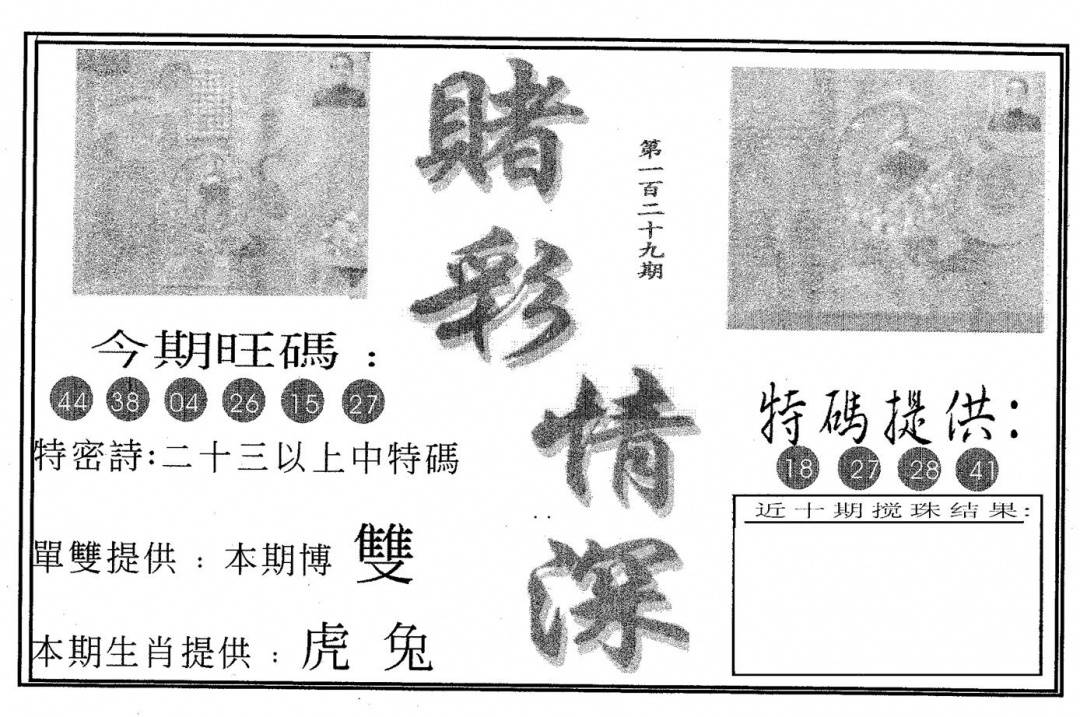 賭彩情深
第一百二十九期
今期旺碼：
44 38 04 26 15 27
特密詩:二十三以上中特碼
單雙提供：本期博 雙
本期生肖提供：虎 兔
特碼提供：
18 27 28 41
近十期搅珠结果: